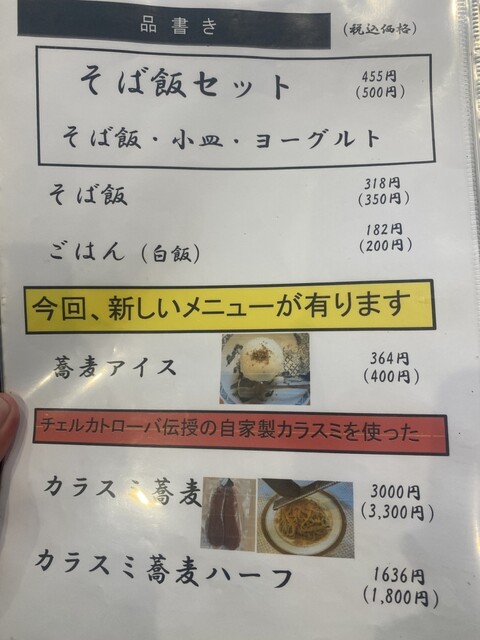 品書き
(税込価格)
そば飯セット
455円
(500円)
そば飯・小皿・ヨーグルト
そば飯
318円
(350円)
ごはん (白飯)
182円
(200円)
今回、新しいメニューが有ります
蕎麦アイス
364円
(400円)
チェルカトローパ伝授の自家製カラスミを使った
カラスミ蕎麦
3000円
(3,300円)
カラスミ蕎麦ハーフ
1636円
(1,800円)